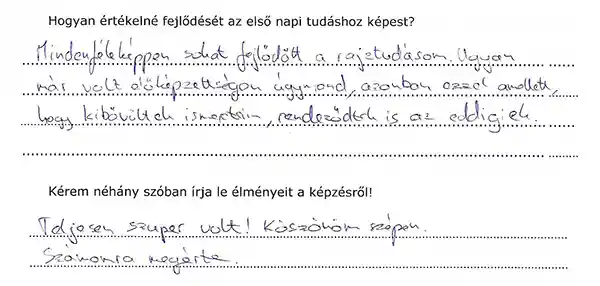 Hogyan értékelné fejlődését az első napi tudáshoz képest?
Mindenféleképpen sokat fejlődött a rajztudásom. Ugyan
már volt előképzettségem úgymond, azonban ezzel amellett,
hogy kibővültek ismereteim, rendeződtek is az eddigiek.
Kérem néhány szóban írja le élményeit a képzésről!
Teljesen szuper volt! Köszönöm szépen.
Számomra megérte.